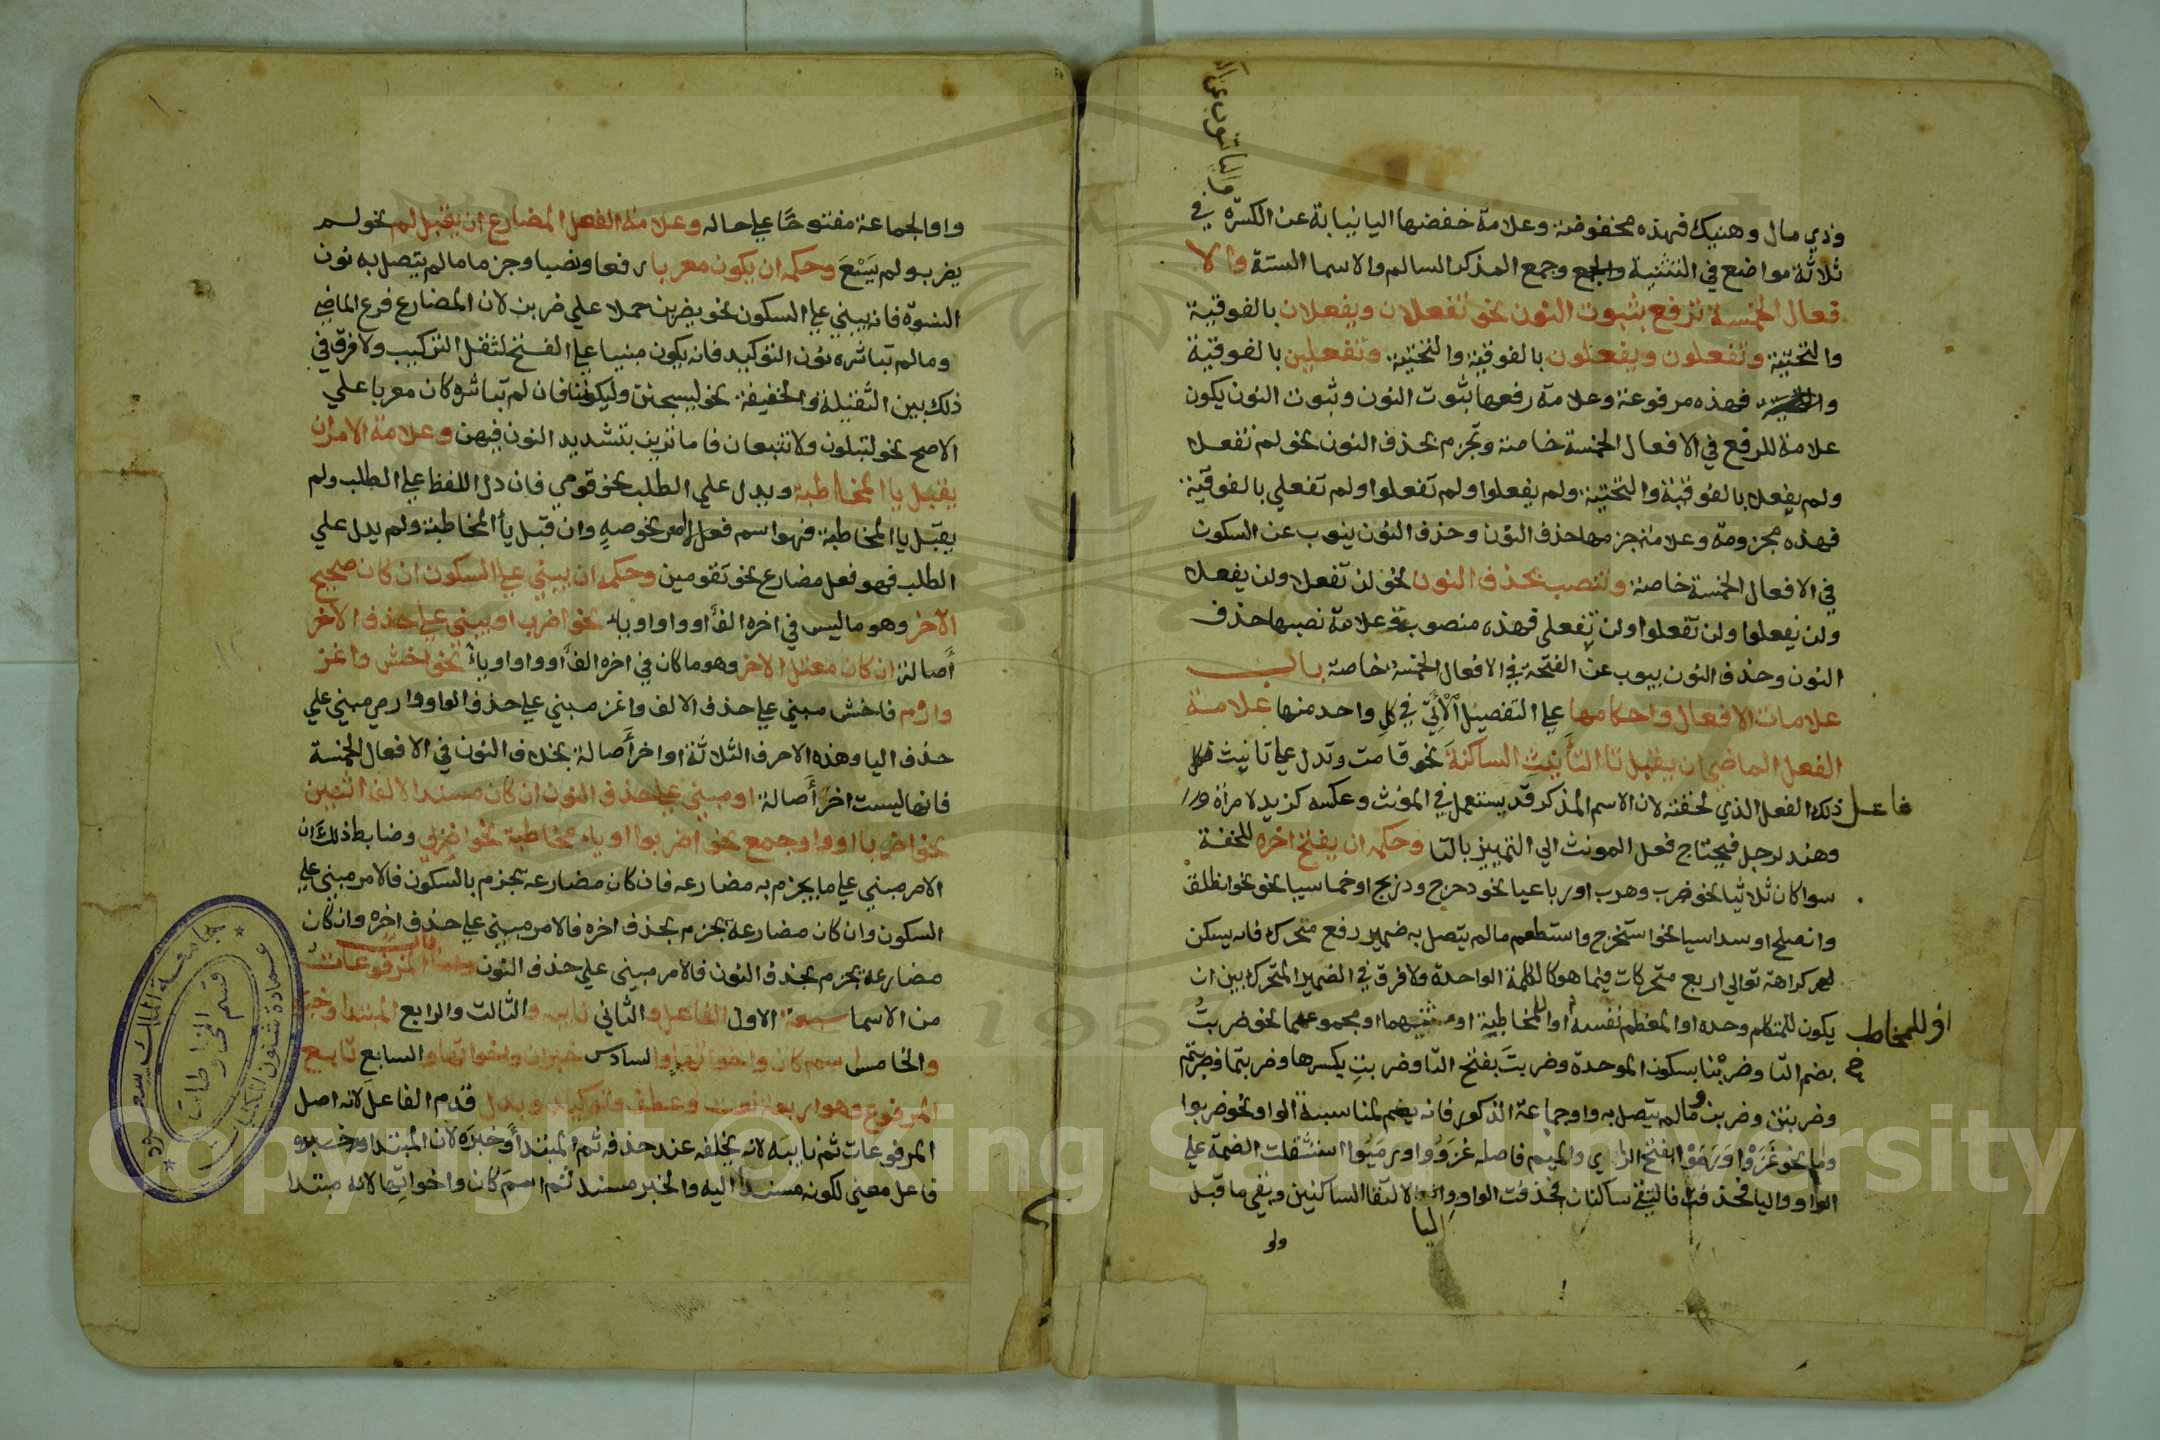 وذي مال وهنيك فهذه مخفوضة وعلامة خفضها اليا نيابة عن الكسرة في
ثلاثة مواضع في التثنية والجمع وجمع المذكر السالم والاسما الستة والا
فعال الخمسة ترفع بثبوت النون نحو تفعلان ويفعلان بالفوقية
والتحتية وتفعلون ويفعلون بالفوقية والتحتية وتفعلين بالفوقية
فهذه مرفوعة وعلامة رفعها بثوت النون وثبوت النون يكون
علامة للرفع في الافعال الخمسة خاصة وتجزم بحذف النون نحو لم تفعلا
ولم يفعلا بالفوقية والتحتية ولم يفعلوا ولم تفعلوا ولم تفعلي بالفوقية
فهذه مجزومة وعلامة جزمها حذف النون وحذف النون ينوب عن السكون
في الافعال الخمسة خاصة وتنصب بحذف النون نحو لن تفعلا ولن يفعلا
ولن يفعلوا ولن تفعلوا ولن تفعلي فهذه منصوبة وعلامة نصبها حذف
النون وحذف النون ينوب عن الفتحة في الافعال الخمسة خاصة باب
علامات الافعال واحكامها علي التفصيل الأتي في كل واحد منها علامة
الفعل الماضي ان يقبل تا التأنيث الساكنة نحو قامت وتدل علي تانيث
فاعل ذلك الفعل الذي لحقته لان الاسم المذكر قد يستعمل في المؤنث وعكسه كزيد لامراة
وهند لرجل فيحتاج فعل المونث الي التمييز بالتا وحكمه ان يفتح اخره للخفة
سوا كان ثلاثيا نحو ضرب وهرب او رباعيا نحو دحرج ودربج او خماسيا نحو انطلق
وانصلح او سداسيا نحو استخرج واستطعم مالم يتصل به ضمير رفع متحرك فانه يسكن
كراهة توالي اربع متحركات فيما هو كالكلمة الواحدة ولا فرق في الضمير المتحرك بين ان
يكون للمتكلم وحده او المعظم نفسه او للمخاطب او للمخاطبة او مثنيهما او مجموعهما نحو ضربتُ
بضم التا وضربْنا بسكون الموحدة وضربتَ بفتح التا وضربتِ بكسرها وضربتما وضربتم
وضربتن وضربن ومالم يتصل به واو جماعة الذكور فانه يضم لمناسبة الواو نحو ضربوا
واما نحو غَزَوْا وَرَمَوْا بفتح الزاي والميم فاصله غزَوُوا ورمَيُوا استثقلت الضمة علي
الواو واليا فحذفت فالتقي ساكنان فحذفت الواو واليا لالتقا الساكنين وبقي ما قبل
واو
واو الجماعة مفتوحًا علي حاله وعلامة الفعل المضارع ان يقبل لم نحو لم
يضرب ولم يَسْعَ وحكمه ان يكون معربا رفعا ونصبا وجزما مالم يتصل به نون
النسوة فانه يبني علي السكون نحو يضربن حملا علي ضربن لان المضارع فرع الماضي
ومالم تباشره نون التوكيد فانه يكون مبنيا علي الفتح لثقل التركيب ولا فرق في
ذلك بين الثقيلة والخفيفة نحو ليسجنن وليكونا فان لم تباشره كان معربا علي
الاصح نحو لتبلون ولا تتبعان فاما ترين بتشديد النون فيهن وعلامة الامر ان
يقبل يا المخاطبة ويدل علي الطلب نحو قومي فان دل اللفظ علي الطلب ولم
يقبل يا المخاطبة فهو اسم فعل الامر نحو صهٍ وان قبل يأ المخاطبة ولم يدل علي
الطلب فهو فعل مضارع نحو تقومين وحكمه ان يبني علي السكون ان كان صحيح
الاخر وهو ما ليس في اخره الفًا او واوا ويا نحو اضرب او يبني علي حذف الاخر
أصالة ان كان معتل الاخر وهو ما كان في اخره الفًا او واوا وياءً نحو اخش واغز
وارم فاخش مبني علي حذف الالف واغز مبني علي حذف الواو وارمي مبني علي
حذف اليا وهذه الاحرف الثلاثة اواخر أَصالة بخلاف النون في الافعال الخمسة
فانها ليست اخر أَصالة او مبني علي حذف النون ان كان مسندا لالف اثنين
نحو اضربا او واو جمع نحو اضربوا او ياء مخاطبة نحو اضربي وضابط ذلك ان
الامر مبني علي ما يجزم به مضارعه فان كان مضارعه يجزم بالسكون فالامر مبني علي
السكون وان كان مضارعه يجزم بحذف اخره فالامر مبني علي حذف اخره وان كان
مضارعه يجزم بحذف النون فالامر مبني علي حذف النون باب المرفوعات
من الاسما سبعة الاول الفاعل والثاني نايبه والثالث والرابع المبتدا وخبره
والخامس اسم كان واخواتها والسادس خبر ان واخواتها والسابع تابع
المرفوع وهو اربعة نعت وعطف وتوكيد وبدل قدم الفاعل لانه اصل
المرفوعات ثم نايبه لانه يخلفه عند حذفه ثم المبتدأ وخبره لان المبتدا وخبره
فاعل معني لكونه مسندا اليه والخبر مسند ثم اسمَ كان واخواتِها لانه مبتدا
جامعة الملك سعود
عمادة شئون المكتبات
قسم المخطوطات
Copyright © King Saud University
195